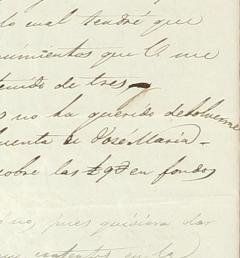 lo cual tendré que
cimientos que U. me
tenido de tres
s no ha querido devolverme
cuenta a José María -
sobre las en fondos
no, pues quisiera dar
en la